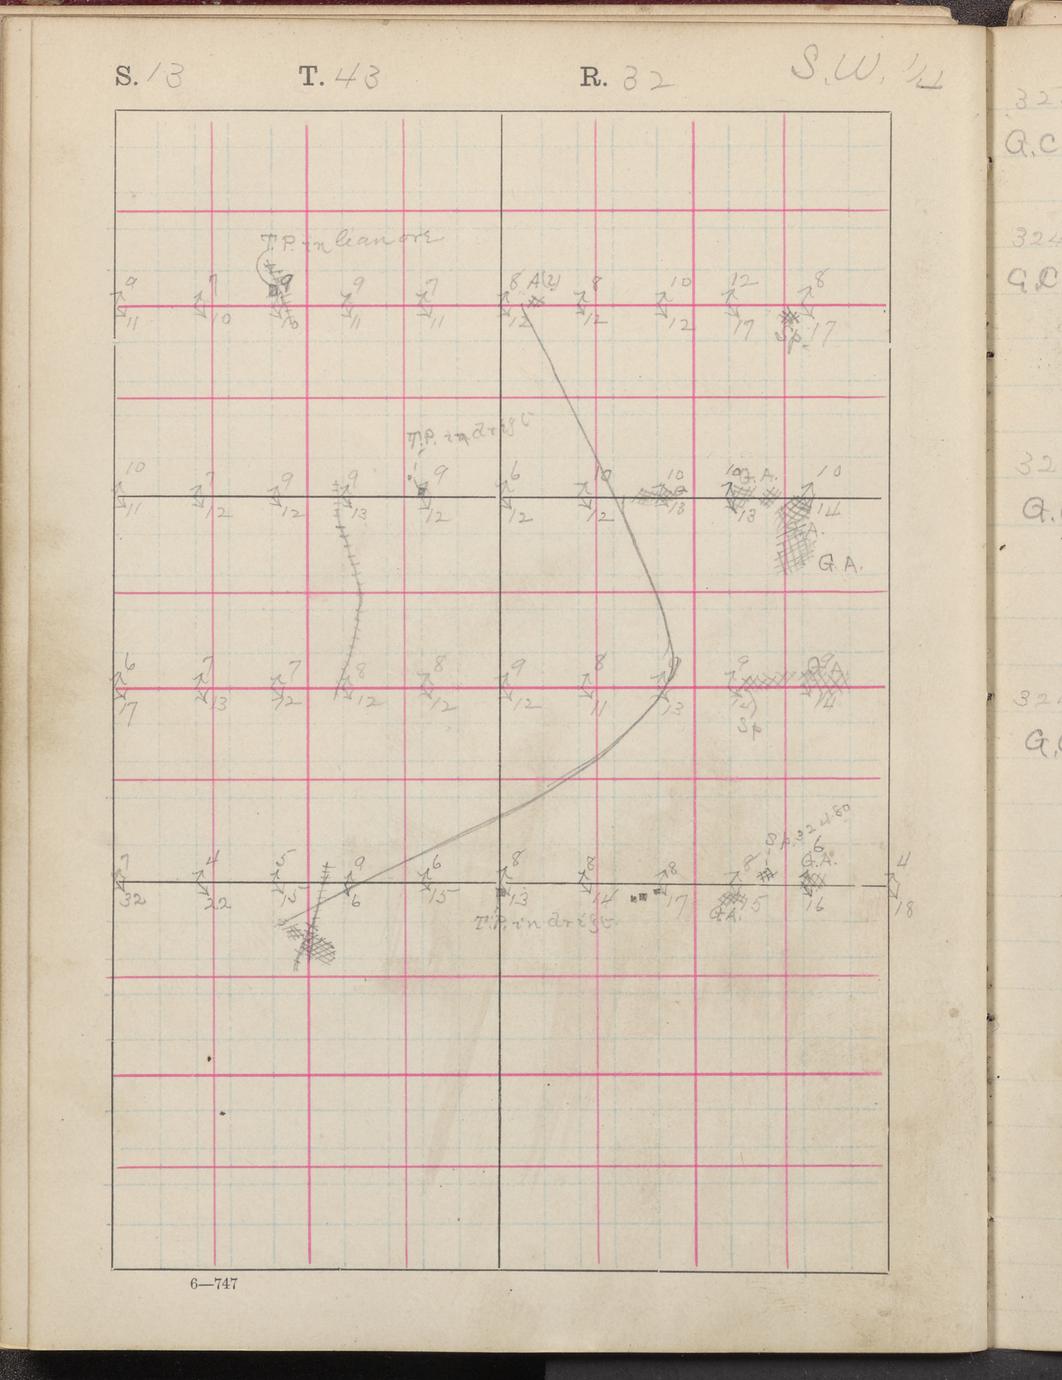 S. 13 T. 43 R. 32 S.W. 1/4
T.P. in lean ore
9 7 9 9 7 8 A(?) 8 10 12 8
11 10 10 11 11 12 12 12 17 Sp. 17
T.P. in drift
10 7 9 9 9 6 10 10 10 G.A. 10
11 12 12 13 12 12 12 13 13 14
A.
G.A.
6 7 7 8 8 9 8 9 9 9
17 13 12 12 12 12 11 13 14
Sp
Sp. 32480
7 4 5 9 6 8 8 8 8 6 4
G.A.
32 22 15 6 15 13 14 17 15 16 18
G.A.
T.P. in drift
6—747
32
G.C
324
G.C
32
G.
32
G.